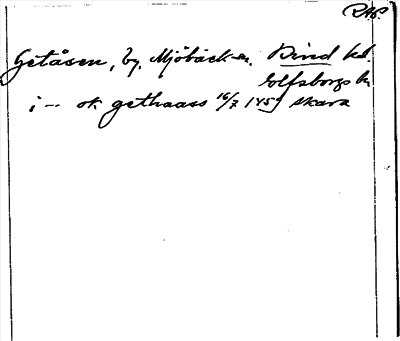 RAP.
Getåsen, by, Mjöbäck sn. Kind hd.
Elfsborgs ln
i -- ok gethaass 16/7 1459 Skara